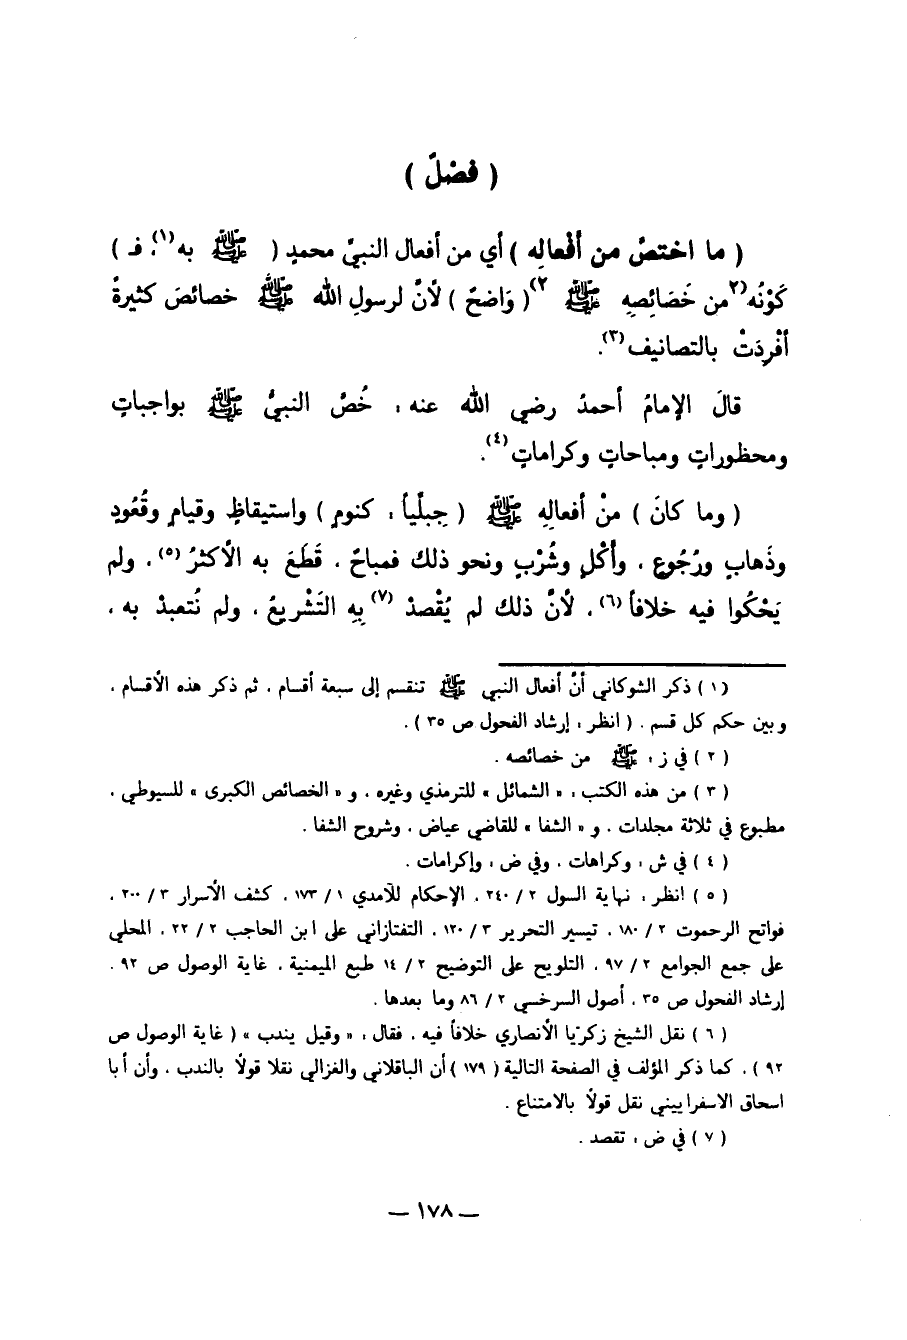 ( فصْلٌ )
( ما اختصَّ من أَفْعالِه ) أي من أفعال النبيِّ محمدٍ ( ﷺ به⁽١⁾، فـ )
كَوْنُه⁽٢ من خَصَائِصِهِ ﷺ ٢⁾ ( وَاضحٌ ) لأنَّ لرسولِ الله ﷺ خصائصَ كثيرةً
أُفْرِدَتْ بالتصانيف⁽٣⁾.
قالَ الإمامُ أحمدُ رضي الله عنه : خُصَّ النبيُّ ﷺ بواجباتٍ
ومحظوراتٍ ومباحاتٍ وكراماتٍ⁽٤⁾.
( وما كانَ ) منْ أفعالِهِ ﷺ ( جِبلِّياً : كنومٍ ) واستيقاظٍ وقيامٍ وقُعُودٍ
وذَهابٍ ورُجُوعٍ ، وأَكْلٍ وشُرْبٍ ونحوِ ذلك فمباحٌ ، قَطَعَ به الأكثرُ⁽٥⁾ ، ولم
يَحْكُوا فيه خلافاً⁽٦⁾ ، لأنَّ ذلك لم يُقْصدْ⁽٧⁾ بِهِ التَشْريعُ ، ولم نُتعبدْ به ،
( ١ ) ذكر الشوكاني أنَّ أفعال النبي ﷺ تنقسم إلى سبعة أقسام ، ثم ذكر هذه الأقسام ،
وبين حكم كل قسم . ( انظر : إرشاد الفحول ص ٣٥ ) .
( ٢ ) في ز : ﷺ من خصائصه .
( ٣ ) من هذه الكتب : « الشمائل » للترمذي وغيره ، و « الخصائص الكبرى » للسيوطي ،
مطبوع في ثلاثة مجلدات ، و « الشفا » للقاضي عياض ، وشروح الشفا .
( ٤ ) في ش : وكراهات ، وفي ض : وإكرامات .
( ٥ ) انظر : نهاية السول ٢ / ٢٤٠ ، الإحكام للآمدي ١ / ١٧٣ ، كشف الأسرار ٣ / ٢٠٠ ،
فواتح الرحموت ٢ / ١٨٠ ، تيسير التحرير ٣ / ١٢٠ ، التفتازاني على ابن الحاجب ٢ / ٢٢ ، المحلي
على جمع الجوامع ٢ / ٩٧ ، التلويح على التوضيح ٢ / ١٤ طبع الميمنية ، غاية الوصول ص ٩٢ ،
إرشاد الفحول ص ٣٥ ، أصول السرخسي ٢ / ٨٦ وما بعدها .
( ٦ ) نقل الشيخ زكريّا الأنصاري خلافاً فيه ، فقال : « وقيل يندب » ( غاية الوصول ص
٩٢ ) ، كما ذكر المؤلف في الصفحة التالية ( ١٧٩ ) أن الباقلاني والغزالي نقلا قولاً بالندب ، وأن أبا
اسحاق الاسفراييني نقل قولاً بالامتناع .
( ٧ ) في ض : تقصد .
— ١٧٨ —